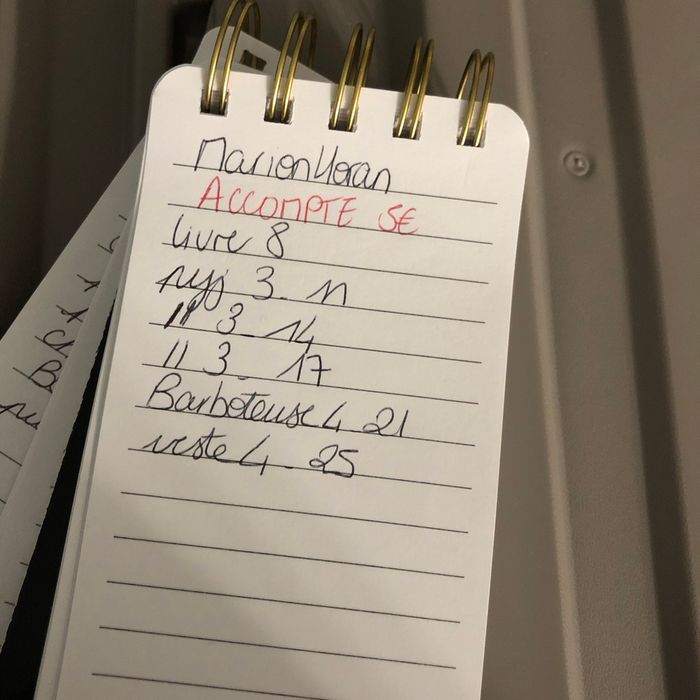 Marion Moran
ACCOMPTE 5€
livre 8
pyj 3 - 11
11 3 - 14
11 3 - 17
Barboteuse 4 21
veste 4 - 25